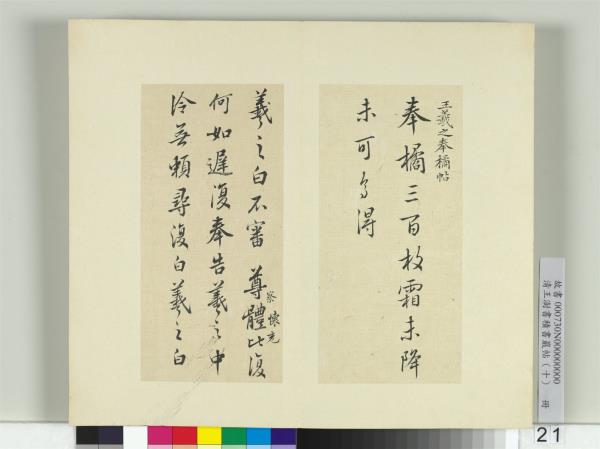 王羲之奉橘帖
奉橘三百枚霜未降
未可多得
羲之白不審尊體比復
察懷充
何如遲復奉告羲之中
冷無賴尋復白羲之白
故書000730N000000000
清王澍書積書巖帖(十) 冊
21